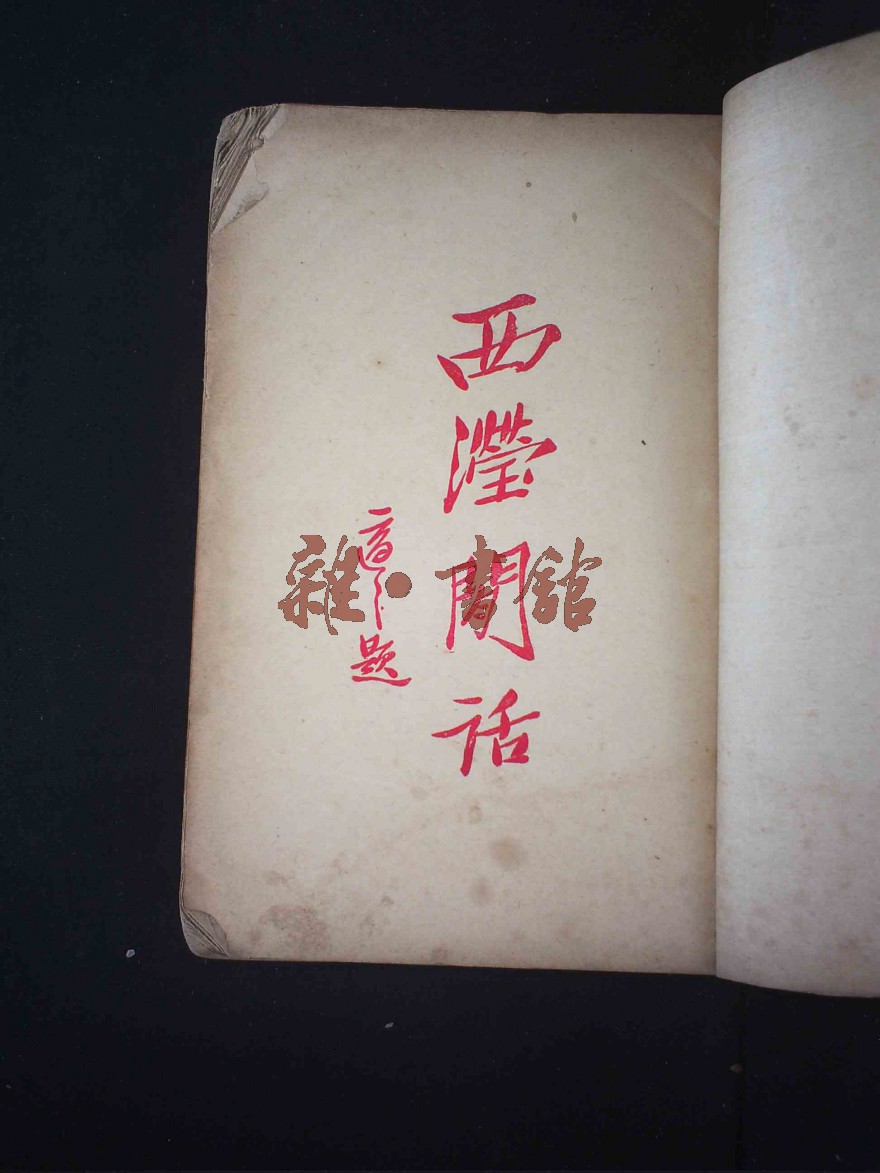 西瀅閒話
適之題
雜·書館